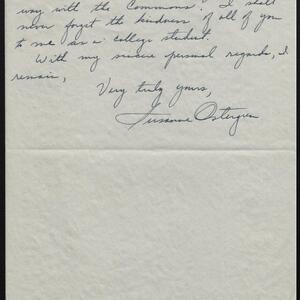 way with the Commons. I shall
never forget the kindness of all of you
to me as a college student.
With my sincere personal regards, I
remain,
Very truly yours,
Susanne Ostergren